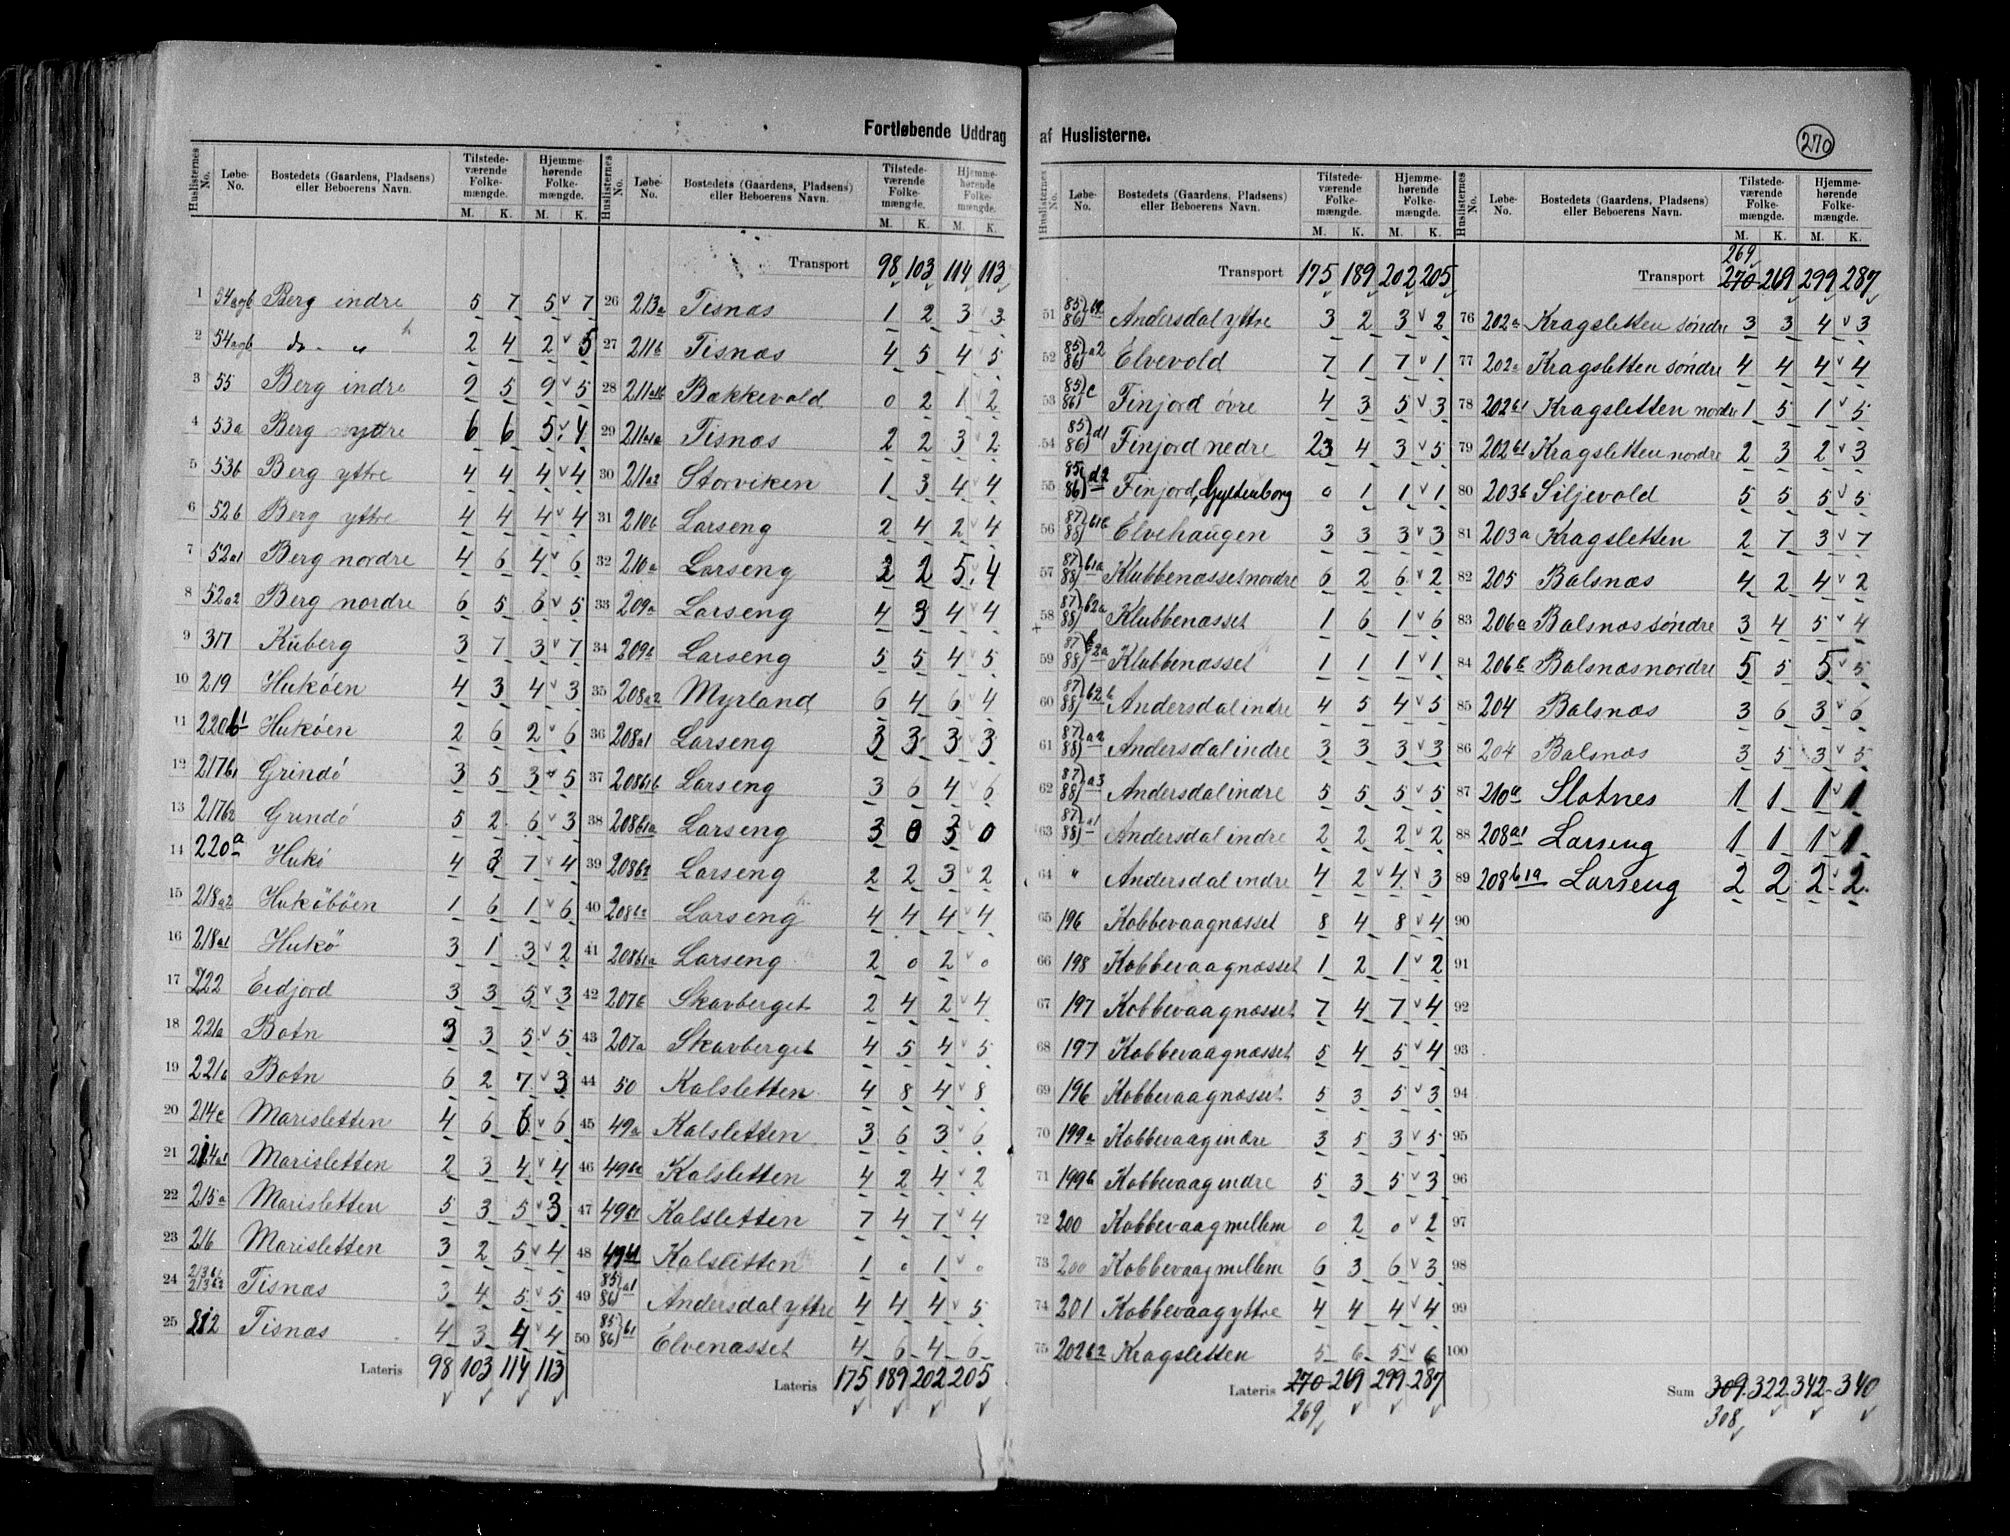 Fortløbende Uddrag af Huslisterne.
270
Huslisternes No. Løbe-No. Bostedets (Gaardens, Pladsens) eller Beboerens Navn. Tilstedeværende Folkemængde. M. K. Hjemmehørende Folkemængde. M. K.
1 54a,b Berg indre 5 7 5 7
2 54a,b do " 2 4 2 5
3 55 Berg indre 2 5 2 5
4 53a Berg ytre 6 6 5 4
5 53b Berg yttre 4 4 4 4
6 52b Berg yttre 4 4 4 4
7 52a1 Berg nordre 4 6 4 6
8 52a2 Berg nordre 6 5 6 5
9 317 Kuberg 3 7 3 7
10 219 Hukøen 4 3 4 3
11 220b1 Hukøen 2 6 2 6
12 217b1 Grindø 3 5 3 5
13 217b2 Grindø 5 2 6 3
14 220a Hukø 4 3 7 4
15 218a2 Hukøbøen 1 6 1 6
16 218a1 Hukø 3 1 3 2
17 222 Eidjord 3 3 5 3
18 221a Botn 3 3 5 5
19 221b Botn 6 2 7 3
20 214c Marisletten 4 6 6 6
21 214a1 Marisletten 2 3 4 4
22 215a Marisletten 5 3 5 3
23 216 Marisletten 3 2 5 4
24 213b1 213b2 Tisnæs 3 4 5 5
25 212 Tisnæs 4 3 4 4
Lateris 98 103 114 113
Huslisternes No. Løbe-No. Bostedets (Gaardens, Pladsens) eller Beboerens Navn. Tilstedeværende Folkemængde. M. K. Hjemmehørende Folkemængde. M. K.
Transport 98 103 114 113
26 213a Tisnæs 1 2 3 3
27 211b Tisnæs 4 5 4 5
28 211a1b Bakkevold 0 2 1 2
29 211a1a Tisnæs 2 2 3 2
30 211a2 Storviken 1 3 4 4
31 210b Larseng 2 4 2 4
32 210a Larseng 2 2 5 4
33 209a Larseng 4 3 4 4
34 209b Larseng 5 5 4 5
35 208a2 Myrland 6 4 6 4
36 208a1 Larseng 3 3 3 3
37 208b1b Larseng 3 6 4 6
38 208b1a Larseng 3 0 3 0
39 208b2 Larseng 2 2 3 2
40 208b2 Larseng 4 4 4 4
41 208b1a Larseng 2 0 2 0
42 207b Skavberget 2 4 2 4
43 207a Skavberget 4 5 4 5
44 50 Kalsletten 4 8 4 8
45 49a Kalsletten 3 6 3 6
46 49b2 Kalsletten 4 2 4 2
47 49b1 Kalsletten 7 4 7 4
48 49b1 Kalsletten 1 0 1 0
49 85) 86) a1 Andersdal yttre 4 4 4 5
50 85) 86) b1 Elvenæsset 4 6 4 6
Lateris 175 189 202 205
Huslisternes No. Løbe-No. Bostedets (Gaardens, Pladsens) eller Beboerens Navn. Tilstedeværende Folkemængde. M. K. Hjemmehørende Folkemængde. M. K.
Transport 175 189 202 205
51 85) 86) Andersdal yttre 3 2 3 2
52 85) 86) a2 Elvevold 7 1 7 1
53 85) 86) c Finjord øvre 4 3 5 3
54 85) 86) d1 Finjord nedre 23 4 3 5
55 85) 86) d2 Finjord, Gyldenborg 0 1 1 1
56 87) 88) b1b Elvehaugen 3 3 3 3
57 87) 88) b1a Klubbenæsset nordre 6 2 6 2
58 87) 88) b2a Klubbenæsset 1 6 1 6
59 87) 88) b2a Klubbenæsset 1 1 1 1
60 87) 88) b2b Andersdal indre 4 5 4 5
61 87) 88) a2 Andersdal indre 3 3 3 3
62 87) 88) a3 Andersdal indre 5 5 5 5
63 87) 88) a1 Andersdal indre 2 2 2 2
64 " Andersdal indre 4 2 4 3
65 196 Kobbevaagnæsset 8 4 8 4
66 198 Kobbevaagnæsset 1 2 1 2
67 197 Kobbevaagnæsset 7 4 7 4
68 197 Kobbevaagnæsset 5 4 5 4
69 196 Kobbevaagnæsset 5 3 5 3
70 199a Kobbevaag indre 3 5 3 5
71 199b Kobbevaag indre 5 3 5 3
72 200 Kobbevaag mellem 0 2 0 2
73 200 Kobbevaag mellem 6 3 6 3
74 201 Kobbevaag yttre 4 4 4 4
75 202b2 Kragsletten 5 6 5 6
Lateris 270 269 299 287
269
Huslisternes No. Løbe-No. Bostedets (Gaardens, Pladsens) eller Beboerens Navn. Tilstedeværende Folkemængde. M. K. Hjemmehørende Folkemængde. M. K.
269
Transport 270 269 299 287
76 202a Kragsletten søndre 3 3 4 3
77 202a Kragsletten søndre 4 4 4 4
78 202b1 Kragsletten nordre 1 5 1 5
79 202b1 Kragsletten nordre 2 3 2 3
80 203b Siljevold 5 5 5 5
81 203a Kragsletten 2 7 3 7
82 205 Balsnæs 4 2 4 2
83 206a Balsnæs søndre 3 4 5 4
84 206b Balsnæs nordre 5 5 5 5
85 204 Balsnæs 3 6 3 6
86 204 Balsnæs 3 5 3 5
87 210a Slatnes 1 1 1 1
88 208a1 Larseng 1 1 1 1
89 208b1a Larseng 2 2 2 2
90
91
92
93
94
95
96
97
98
99
100
Sum 309 322 342 340
308